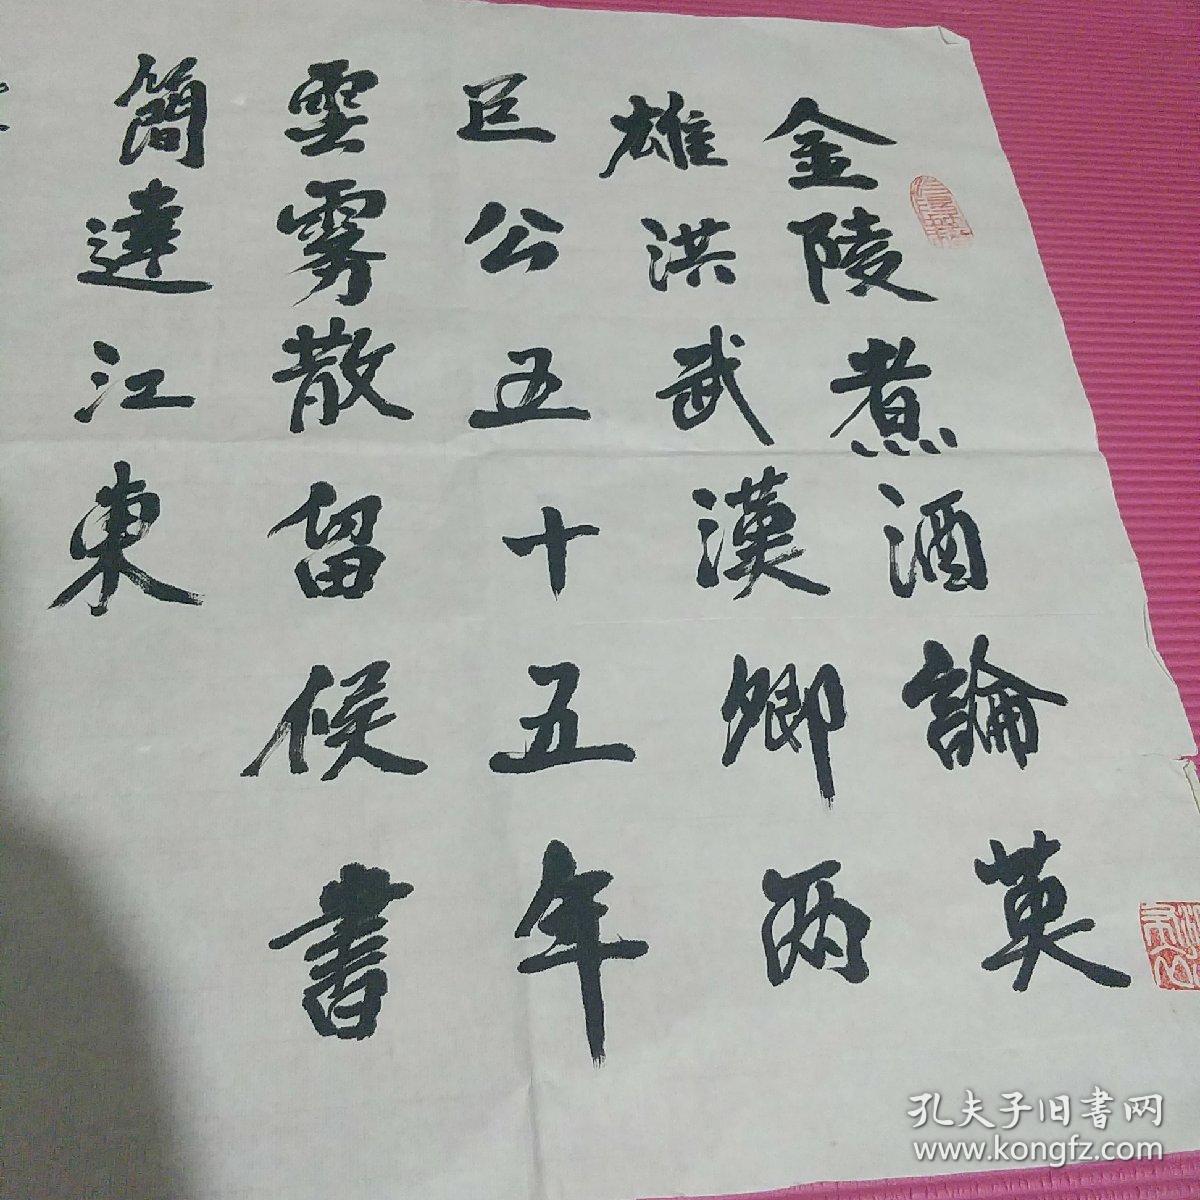 金陵煮酒論英
雄洪武漢卿两
巨公五十五年
雲雾散留候書
簡達江東
孔夫子旧書网
www.kongfz.com